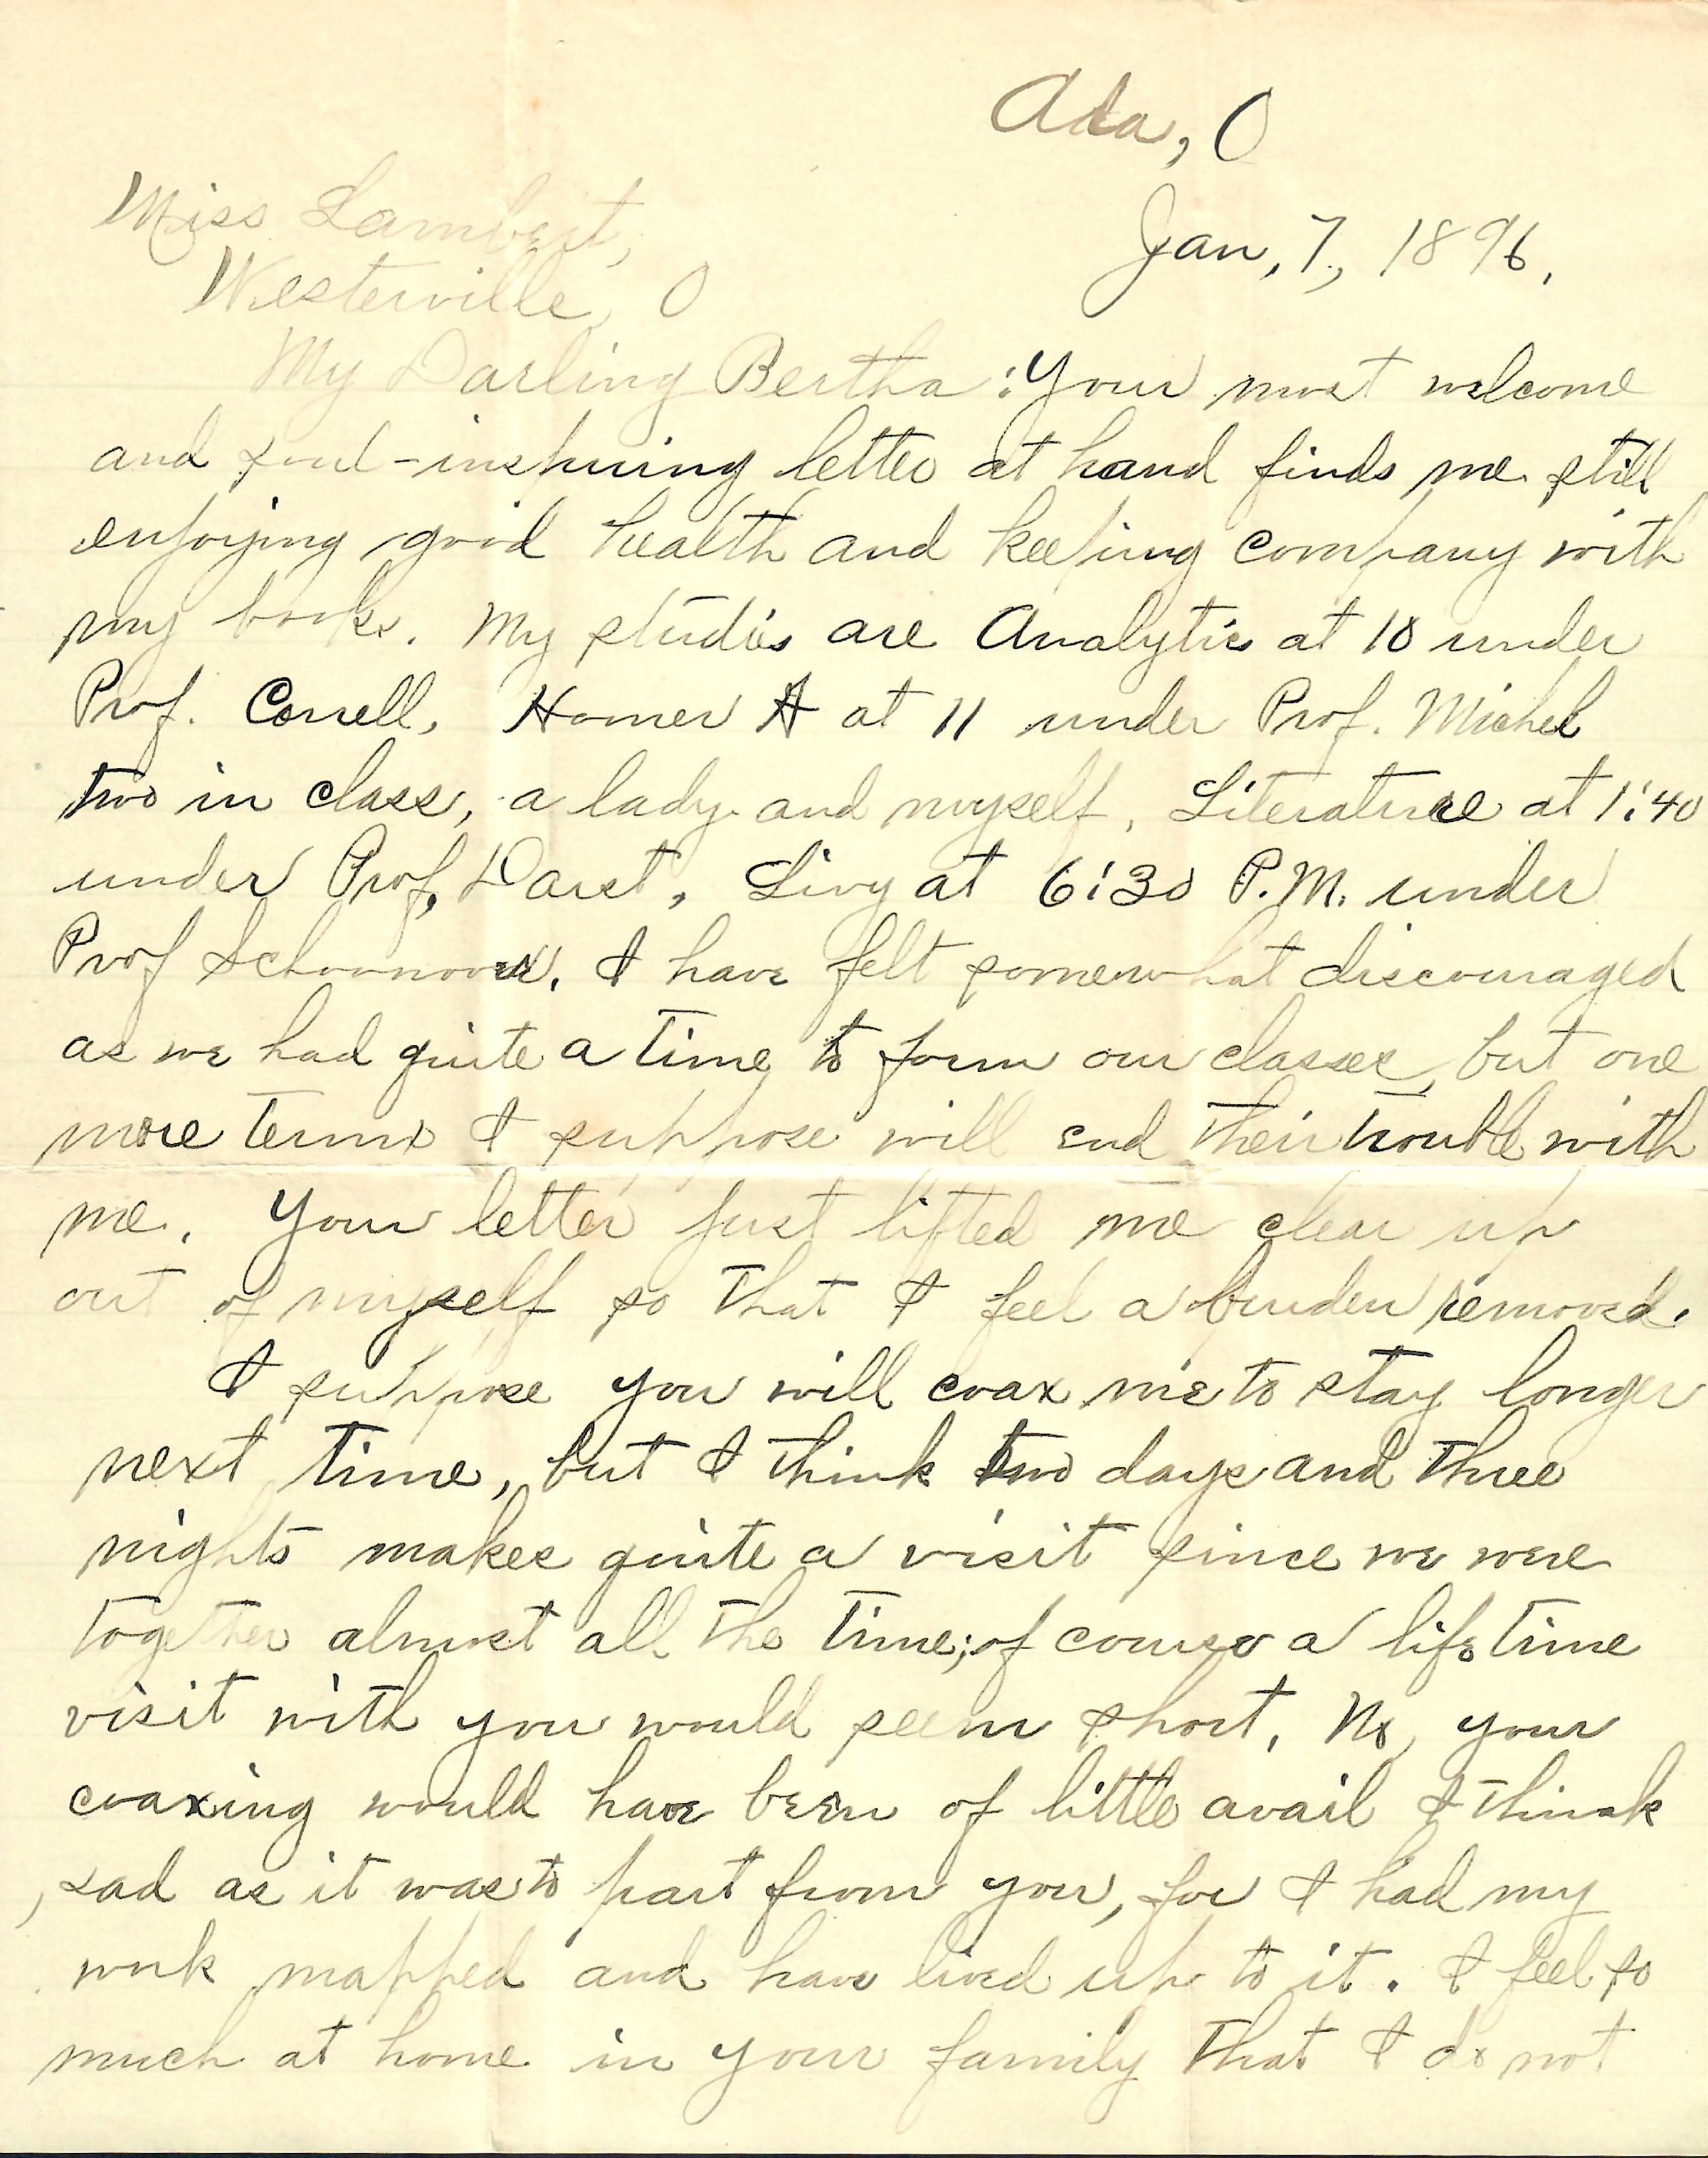 Ada, O
Jan, 7, 1896.
Miss Lambert,
Westerville, O
My Darling Bertha: Your most welcome
and soul-inspiring letter at hand finds me still
enjoying good health and keeping company with
my books. My studies are Analytics at 10 under
Prof. Correll, Homer A at 11 under Prof. Michel
two in class, a lady and myself, Literature at 1:40
under Prof, Darst, Livy at 6:30 P.M. under
Prof Schoonover. I have felt somewhat discouraged
as we had quite a time to form our classes, but one
more term I suppose will end their trouble with
me. Your letter just lifted me clear up
out of myself so that I feel a burden removed.
I suppose you will coax me to stay longer
next time, but I think two days and three
nights makes quite a visit since we were
together almost all the time; of course a life time
visit with you would seem short. No, your
coaxing would have been of little avail I think
, sad as it was to part from you, for I had my
work mapped and have lived up to it. I feel so
much at home in your family that I do not